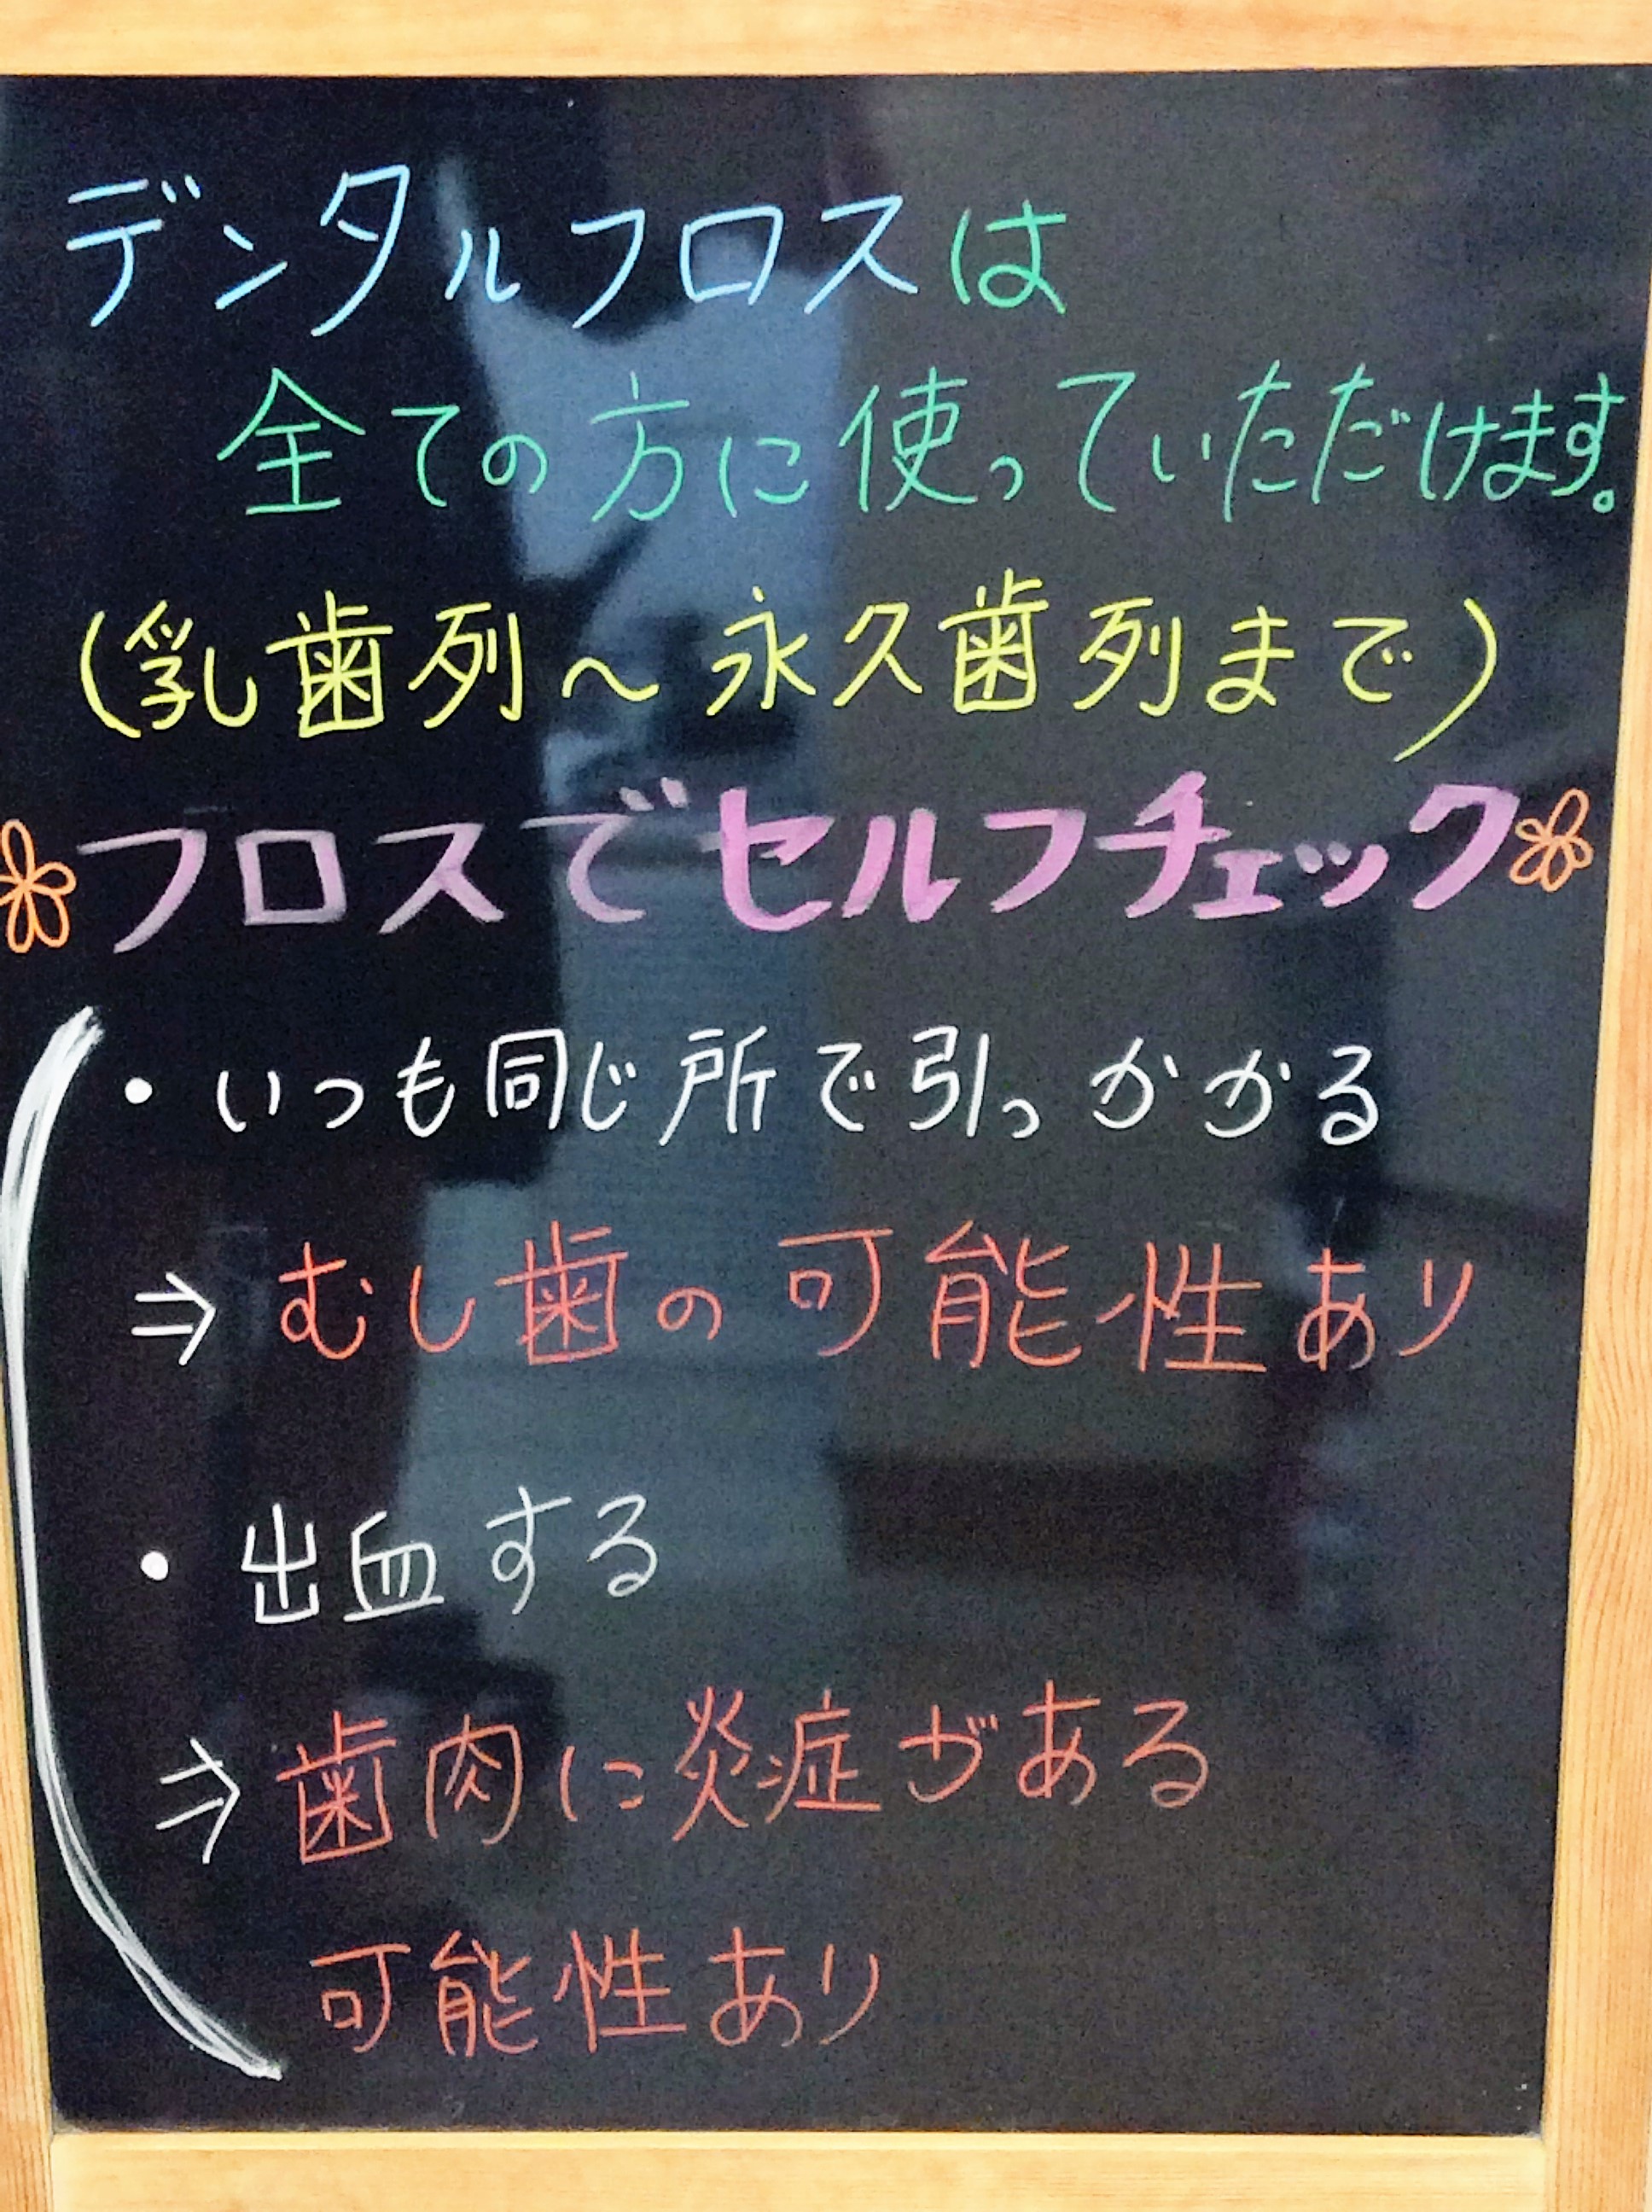 デンタルフロスは
全ての方に使っていただけます。
(乳歯列～永久歯列まで)
フロスでセルフチェック
・いつも同じ所で引っかかる
⇒むし歯の可能性あり
・出血する
⇒歯肉に炎症がある
可能性あり